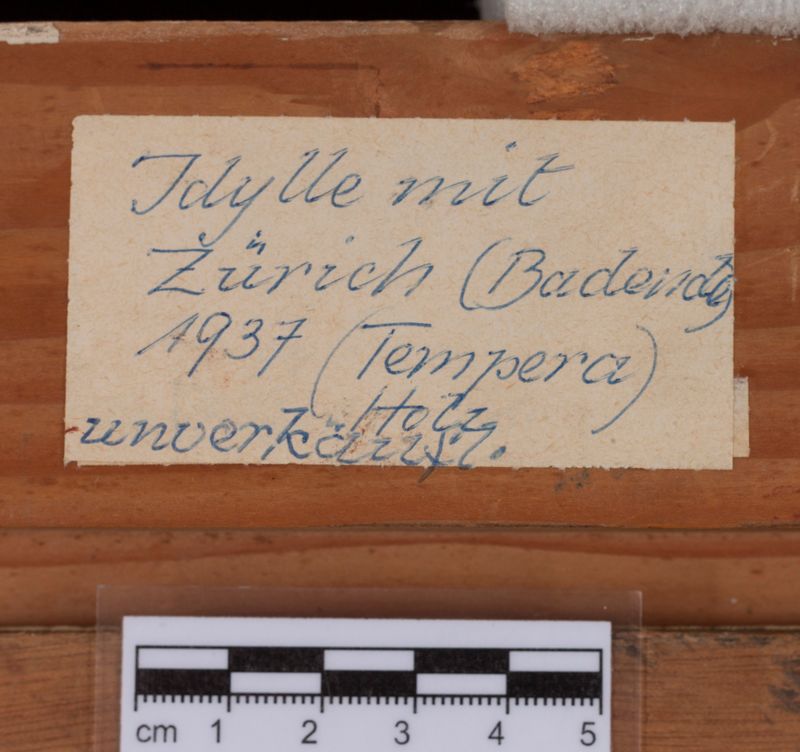 Idylle mit
Zürich (Badende)
1937 (Tempera)
Holz
unverkäufl.
cm 1 2 3 4 5